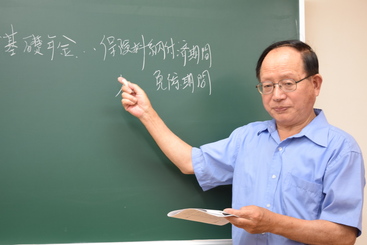 基礎年金…保険料納付済期間
免除期間